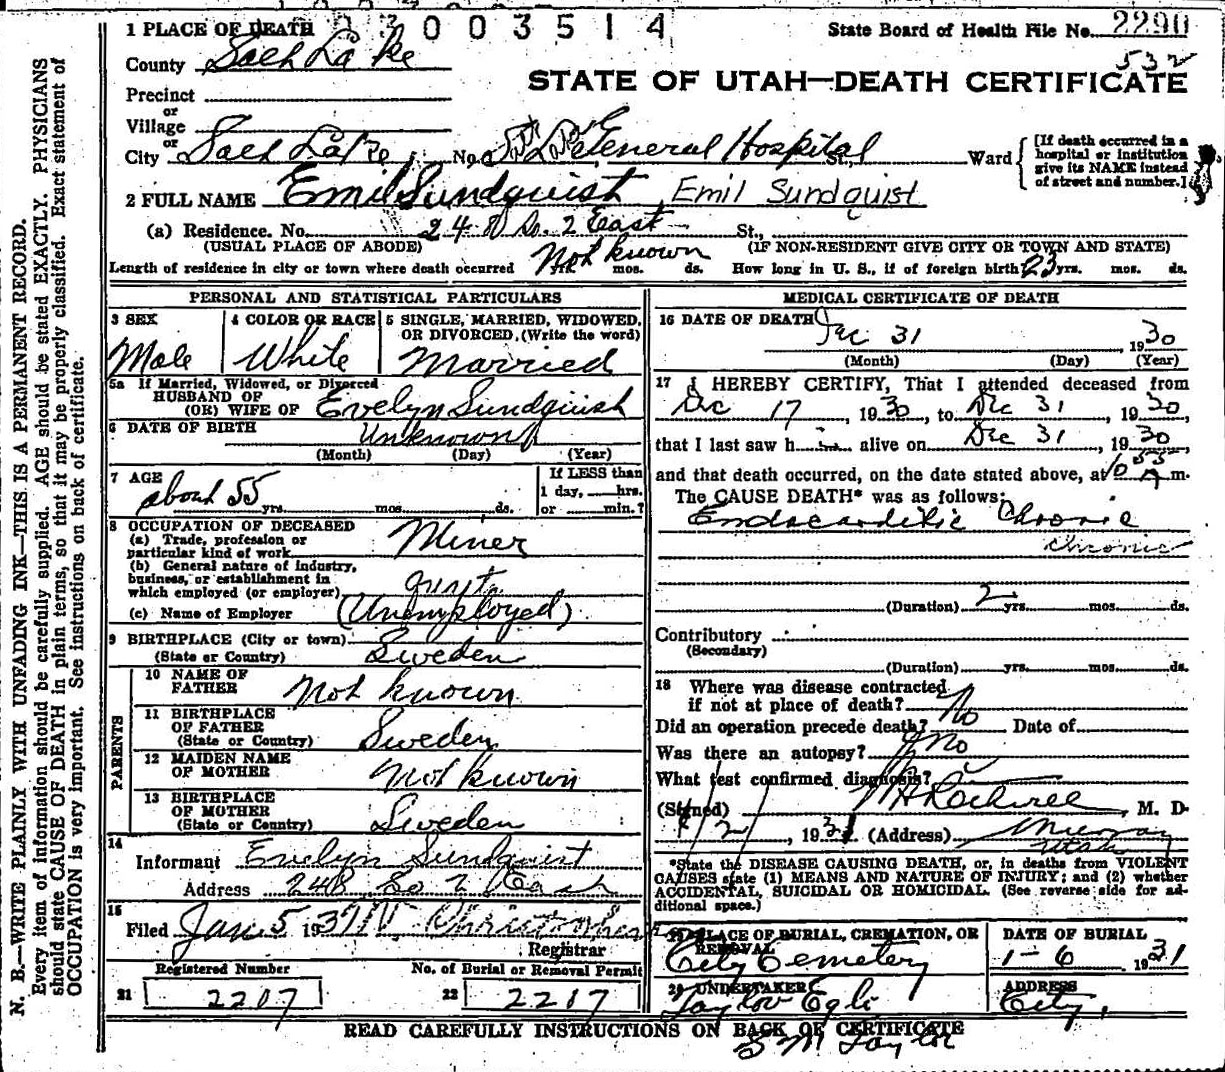 3003514
1 PLACE OF DEATH
State Board of Health File No. 2290
532
County Salt Lake
STATE OF UTAH—DEATH CERTIFICATE
Precinct
or
Village
or
City Salt Lake No. Salt Lake General Hospital St., Ward
[If death occurred in a hospital or institution give its NAME instead of street and number.]
2 FULL NAME Emil Sundquist Emil Sundquist
(a) Residence. No. 248 So. 2 East St.,
(USUAL PLACE OF ABODE) (IF NON-RESIDENT GIVE CITY OR TOWN AND STATE)
Length of residence in city or town where death occurred Not known yrs. mos. ds. How long in U. S., if of foreign birth 23 yrs. mos. ds.
PERSONAL AND STATISTICAL PARTICULARS
3 SEX
Male
4 COLOR OR RACE
White
5 SINGLE, MARRIED, WIDOWED, OR DIVORCED, (Write the word)
Married
5a If Married, Widowed, or Divorced
HUSBAND OF
(OR) WIFE OF Evelyn Sundquist
6 DATE OF BIRTH Unknown
(Month) (Day) (Year)
7 AGE
about 55 yrs. mos. ds.
If LESS than
1 day, hrs.
or min.?
8 OCCUPATION OF DECEASED
(a) Trade, profession or
particular kind of work Miner
(b) General nature of industry,
business, or establishment in
which employed (or employer)
(c) Name of Employer (Unemployed)
9 BIRTHPLACE (City or town)
(State or Country) Sweden
PARENTS
10 NAME OF
FATHER Not known
11 BIRTHPLACE
OF FATHER
(State or Country) Sweden
12 MAIDEN NAME
OF MOTHER Not known
13 BIRTHPLACE
OF MOTHER
(State or Country) Sweden
14
Informant Evelyn Sundquist
Address 248 So 2 East
15
Filed Jan 5 1931
Registrar
Registered Number No. of Burial or Removal Permit
21 2207 22 2217
MEDICAL CERTIFICATE OF DEATH
16 DATE OF DEATH
Dec 31, 1930
(Month) (Day) (Year)
17 I HEREBY CERTIFY, That I attended deceased from
Dec 17, 1930, to Dec 31, 1930
that I last saw him alive on Dec 31, 1930
and that death occurred, on the date stated above, at 10 55 A m.
The CAUSE DEATH* was as follows:
Endocarditis Chronic
Chronic
(Duration) 2 yrs. mos. ds.
Contributory
(Secondary)
(Duration) yrs. mos. ds.
18 Where was disease contracted
if not at place of death?
Did an operation precede death? No Date of
Was there an autopsy? No
What test confirmed diagnosis?
(Signed) M. D.
1/2/, 1931 (Address) Murray
Utah
*State the DISEASE CAUSING DEATH, or, in deaths from VIOLENT
CAUSES state (1) MEANS AND NATURE OF INJURY; and (2) whether
ACCIDENTAL, SUICIDAL OR HOMICIDAL. (See reverse side for ad-
ditional space.)
19 PLACE OF BURIAL, CREMATION, OR
REMOVAL
City Cemetery
DATE OF BURIAL
1-6 1931
20 UNDERTAKER
Taylor Egli
ADDRESS
City,
READ CAREFULLY INSTRUCTIONS ON BACK OF CERTIFICATE
S M Taylor
N. B.—WRITE PLAINLY WITH UNFADING INK—THIS IS A PERMANENT RECORD.
Every item of information should be carefully supplied. AGE should be stated EXACTLY. PHYSICIANS
should state CAUSE OF DEATH in plain terms, so that it may be properly classified. Exact statement of
OCCUPATION is very important. See instructions on back of certificate.